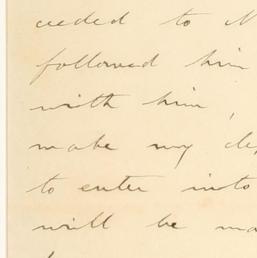 ceeded to N
followed him
with him,
make my de
to enter into
will be ma